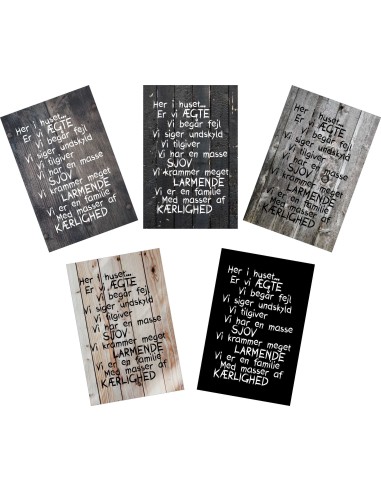 Her i huset...
Er vi ÆGTE
Vi begår fejl
Vi siger undskyld
Vi tilgiver
Vi har en masse
SJOV
Vi krammer meget
LARMENDE
Vi er en familie
Med masser af
KÆRLIGHED
Her i huset...
Er vi ÆGTE
Vi begår fejl
Vi siger undskyld
Vi tilgiver
Vi har en masse
SJOV
Vi krammer meget
LARMENDE
Vi er en familie
Med masser af
KÆRLIGHED
Her i huset...
Er vi ÆGTE
Vi begår fejl
Vi siger undskyld
Vi tilgiver
Vi har en masse
SJOV
Vi krammer meget
LARMENDE
Vi er en familie
Med masser af
KÆRLIGHED
Her i huset...
Er vi ÆGTE
Vi begår fejl
Vi siger undskyld
Vi tilgiver
Vi har en masse
SJOV
Vi krammer meget
LARMENDE
Vi er en familie
Med masser af
KÆRLIGHED
Her i huset...
Er vi ÆGTE
Vi begår fejl
Vi siger undskyld
Vi tilgiver
Vi har en masse
SJOV
Vi krammer meget
LARMENDE
Vi er en familie
Med masser af
KÆRLIGHED